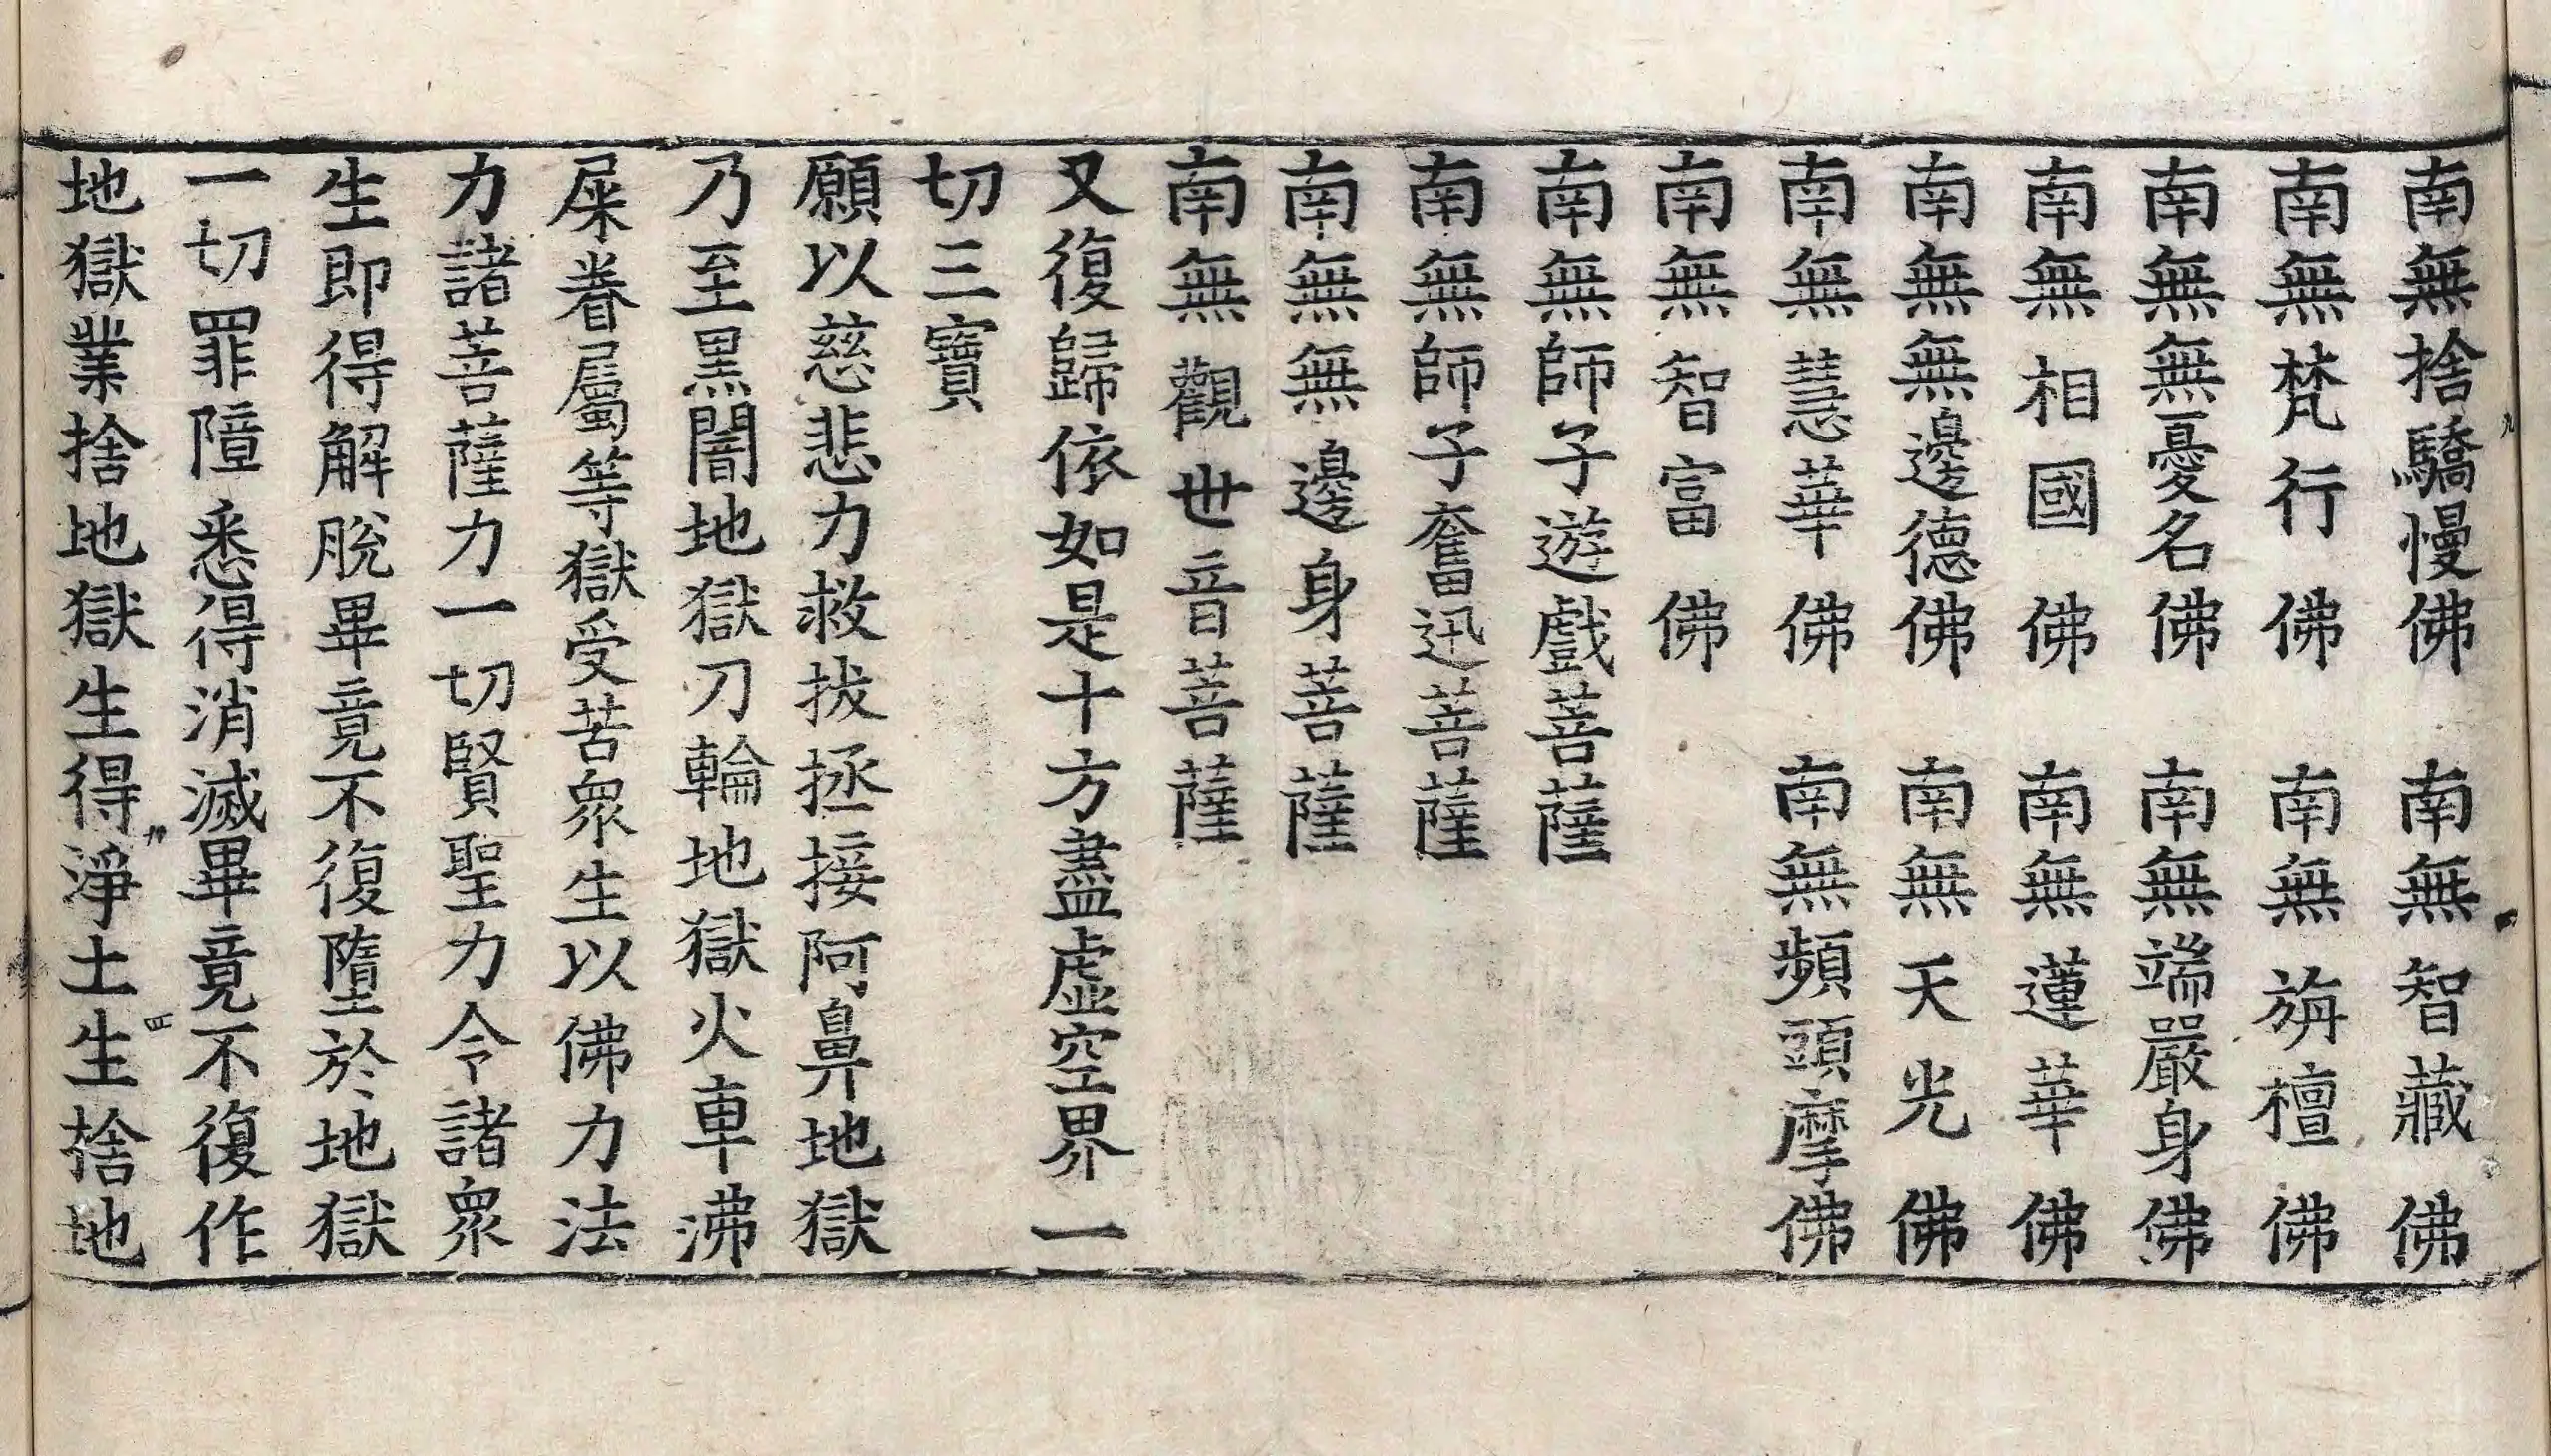 南無捨驕慢佛　南無智藏佛
南無梵行佛　南無旃檀佛
南無無憂名佛　南無端嚴身佛
南無相國佛　南無蓮華佛
南無無邊德佛　南無天光佛
南無慧華佛　南無頻頭摩佛
南無智富佛
南無師子遊戲菩薩
南無師子奮迅菩薩
南無無邊身菩薩
南無觀世音菩薩
又復歸依如是十方盡虛空界一
切三寶
願以慈悲力救拔拯接阿鼻地獄
乃至黑闇地獄刀輪地獄火車沸
屎眷屬等獄受苦眾生以佛力法
力諸菩薩力一切賢聖力令諸眾
生即得解脫畢竟不復墮於地獄
一切罪障悉得消滅畢竟不復作
地獄業捨地獄生得淨土生捨地